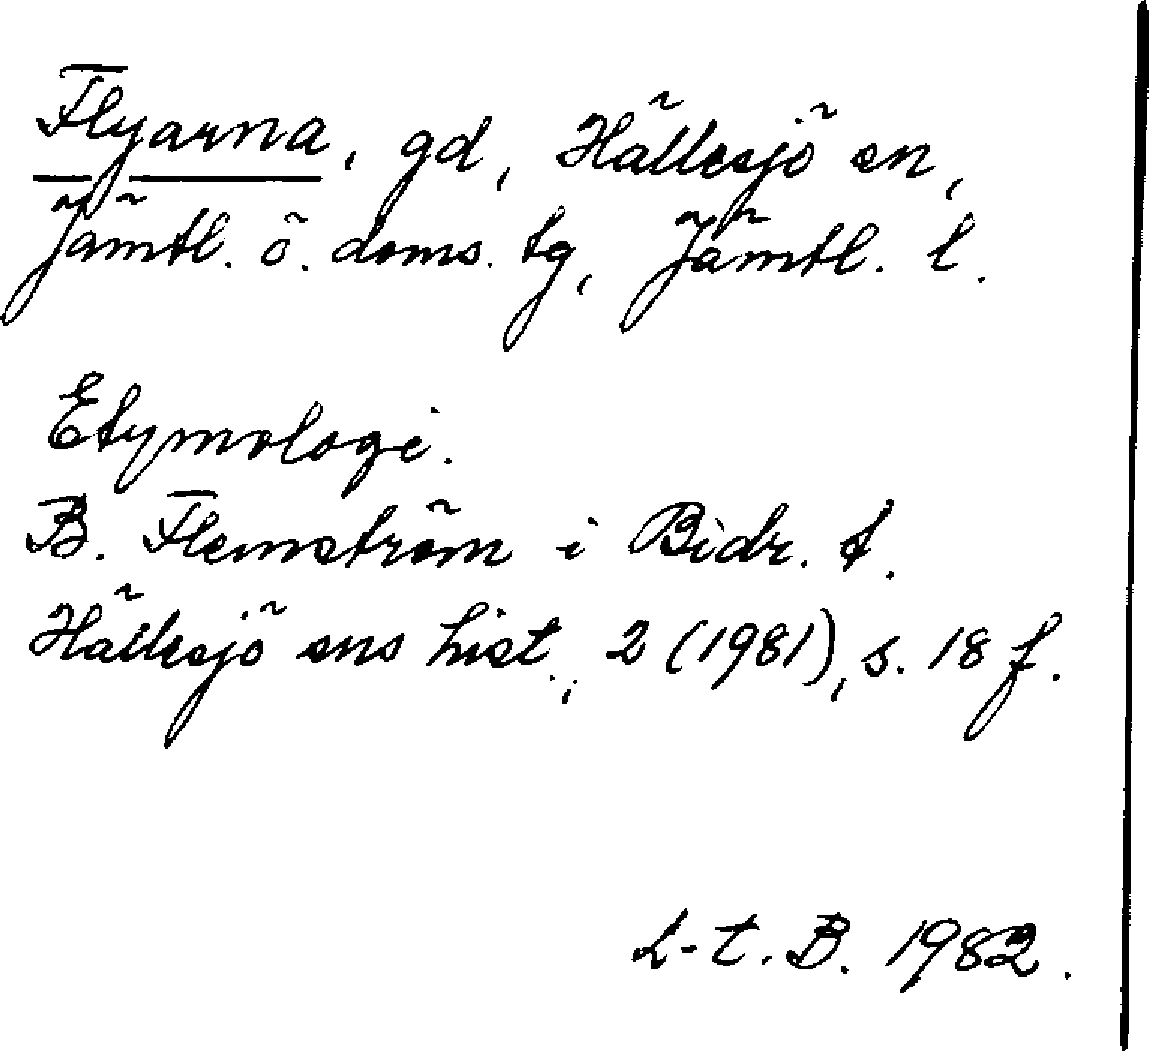 Flyarna, gd, Hällesjö sn,
Jämtl. ö. doms. tg, Jämtl. l.
Etymologi.
B. Flemström i Bidr. t.
Hällesjö sns hist., 2 (1981), s. 18 f.
L-t. B. 1982.